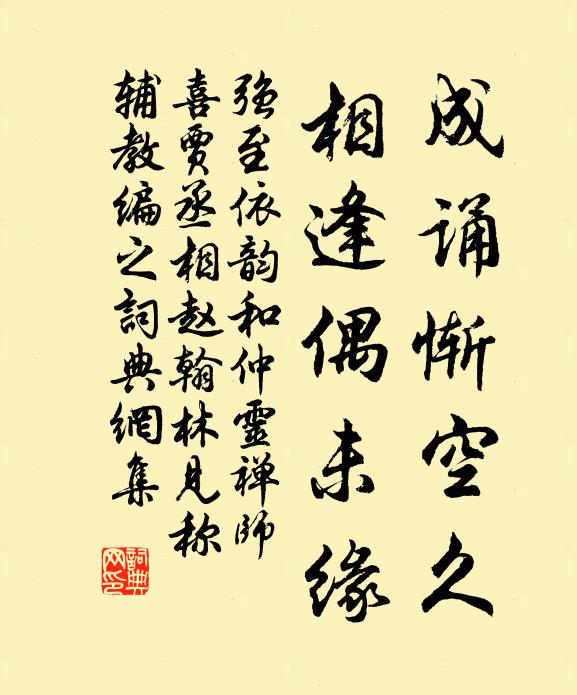 成诵惭空久
相逢偶未缘
强至依韵和仲靈禅師
喜贾丞相赵翰林見称
辅教编之詞典網集
詞典網印